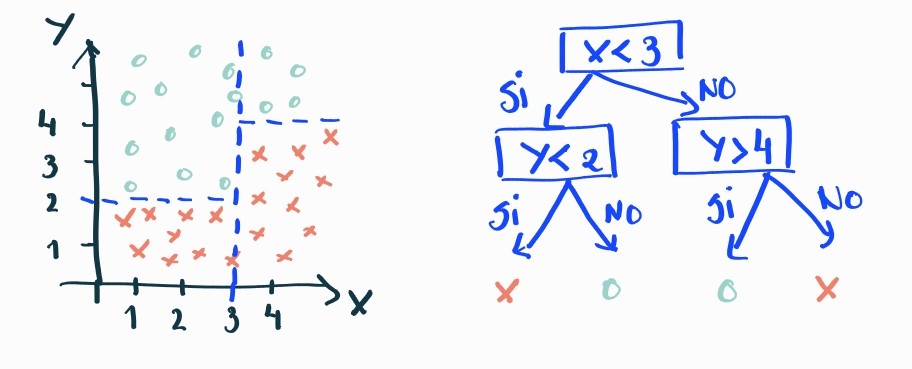 Y
4
3
2
1
1 2 3 4 X
X < 3
Si NO
Y < 2 Y > 4
Si NO Si NO
X O O X